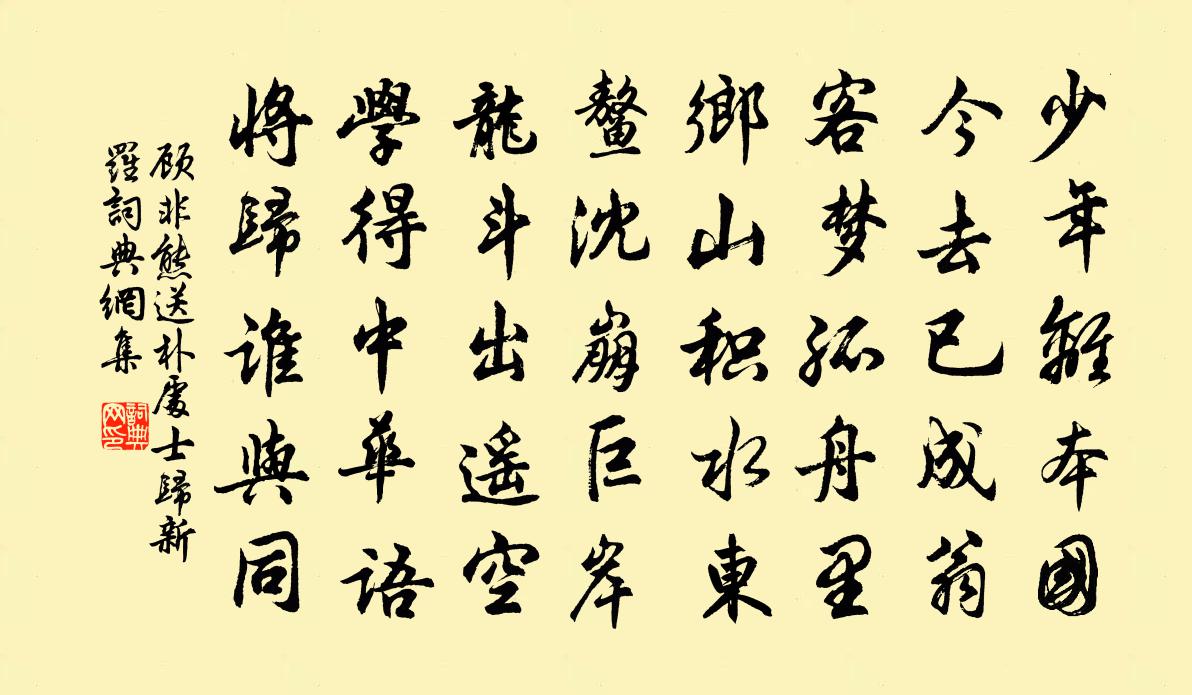 少年離本國
今去已成翁
客梦孤舟里
鄉山积水東
鰲沈崩巨岸
龍斗出遥空
學得中華語
將歸谁與同
顾非熊送朴處士歸新
羅詞典網集
詞典网印